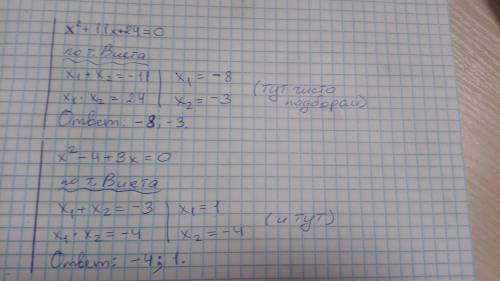 x² + 11x + 24 = 0
по т. Виета
x₁ + x₂ = -11 | x₁ = -8
x₁ · x₂ = 24 | x₂ = -3
(тут чисто
подбором)
Ответ: -8, -3.
x² - 4 + 3x = 0
по т. Виета
x₁ + x₂ = -3 | x₁ = 1
x₁ · x₂ = -4 | x₂ = -4
(и тут)
Ответ: -4; 1.